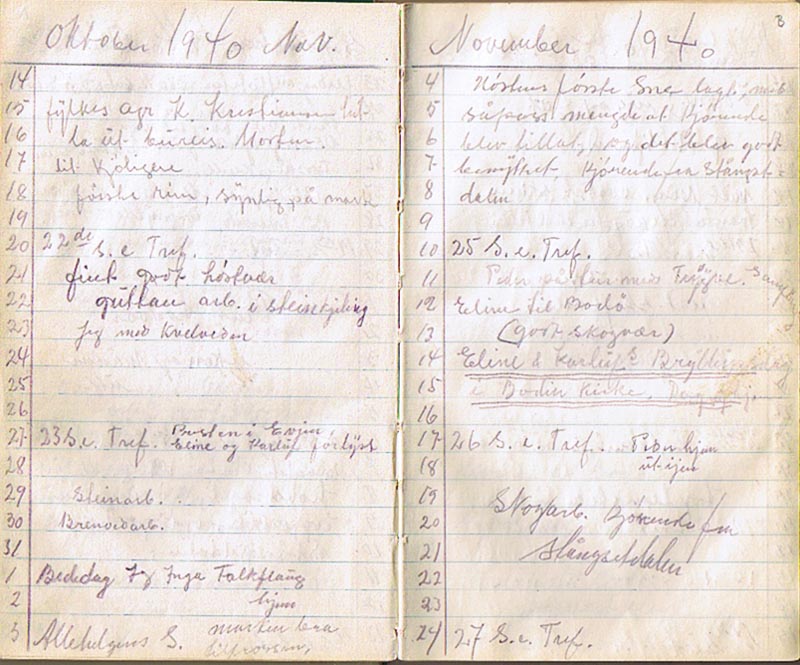 Oktober 1940 Nov.
14
15 fylkes agr K. Kristiansen
16 ta ut bureis.
17 lit kjöligere
18 første rim, synlig på mark
19
20 22de S. e Tref.
21 fint godt høstvær
22 guttan arb. i steinkjöling
23 Jeg med Kvelveden
24
25
26
27 23 S. e. Tref. Presten i Evjen,
Eline og Karluf forlÿst
28
29 Steinarb.
30 Brenvedarb.
31
1 Bededag Inga
2 hjem
3 Allehelgens S. marken bra
November 1940
3
4 Höstens første Sne lagt,
5 såpass mengde at Kjörende
6 blev tillat, og det blev godt
7 benyttet, Kjörende fra Stångset-
8 dalen
9
10 25 S. e. Tref.
11 Peder på
12 Eline til Bodö
13 (godt skogvær)
14 Eline & Karlufs Bryllupsdag
15 i Bodin Kirke,
16
17 26 S. e. Tref. Peder hjem
18 ut igjen
19
20 Skogarb. Kjörende fra
21 Stångsetdalen
22
23
24 27 S. e. Tref.